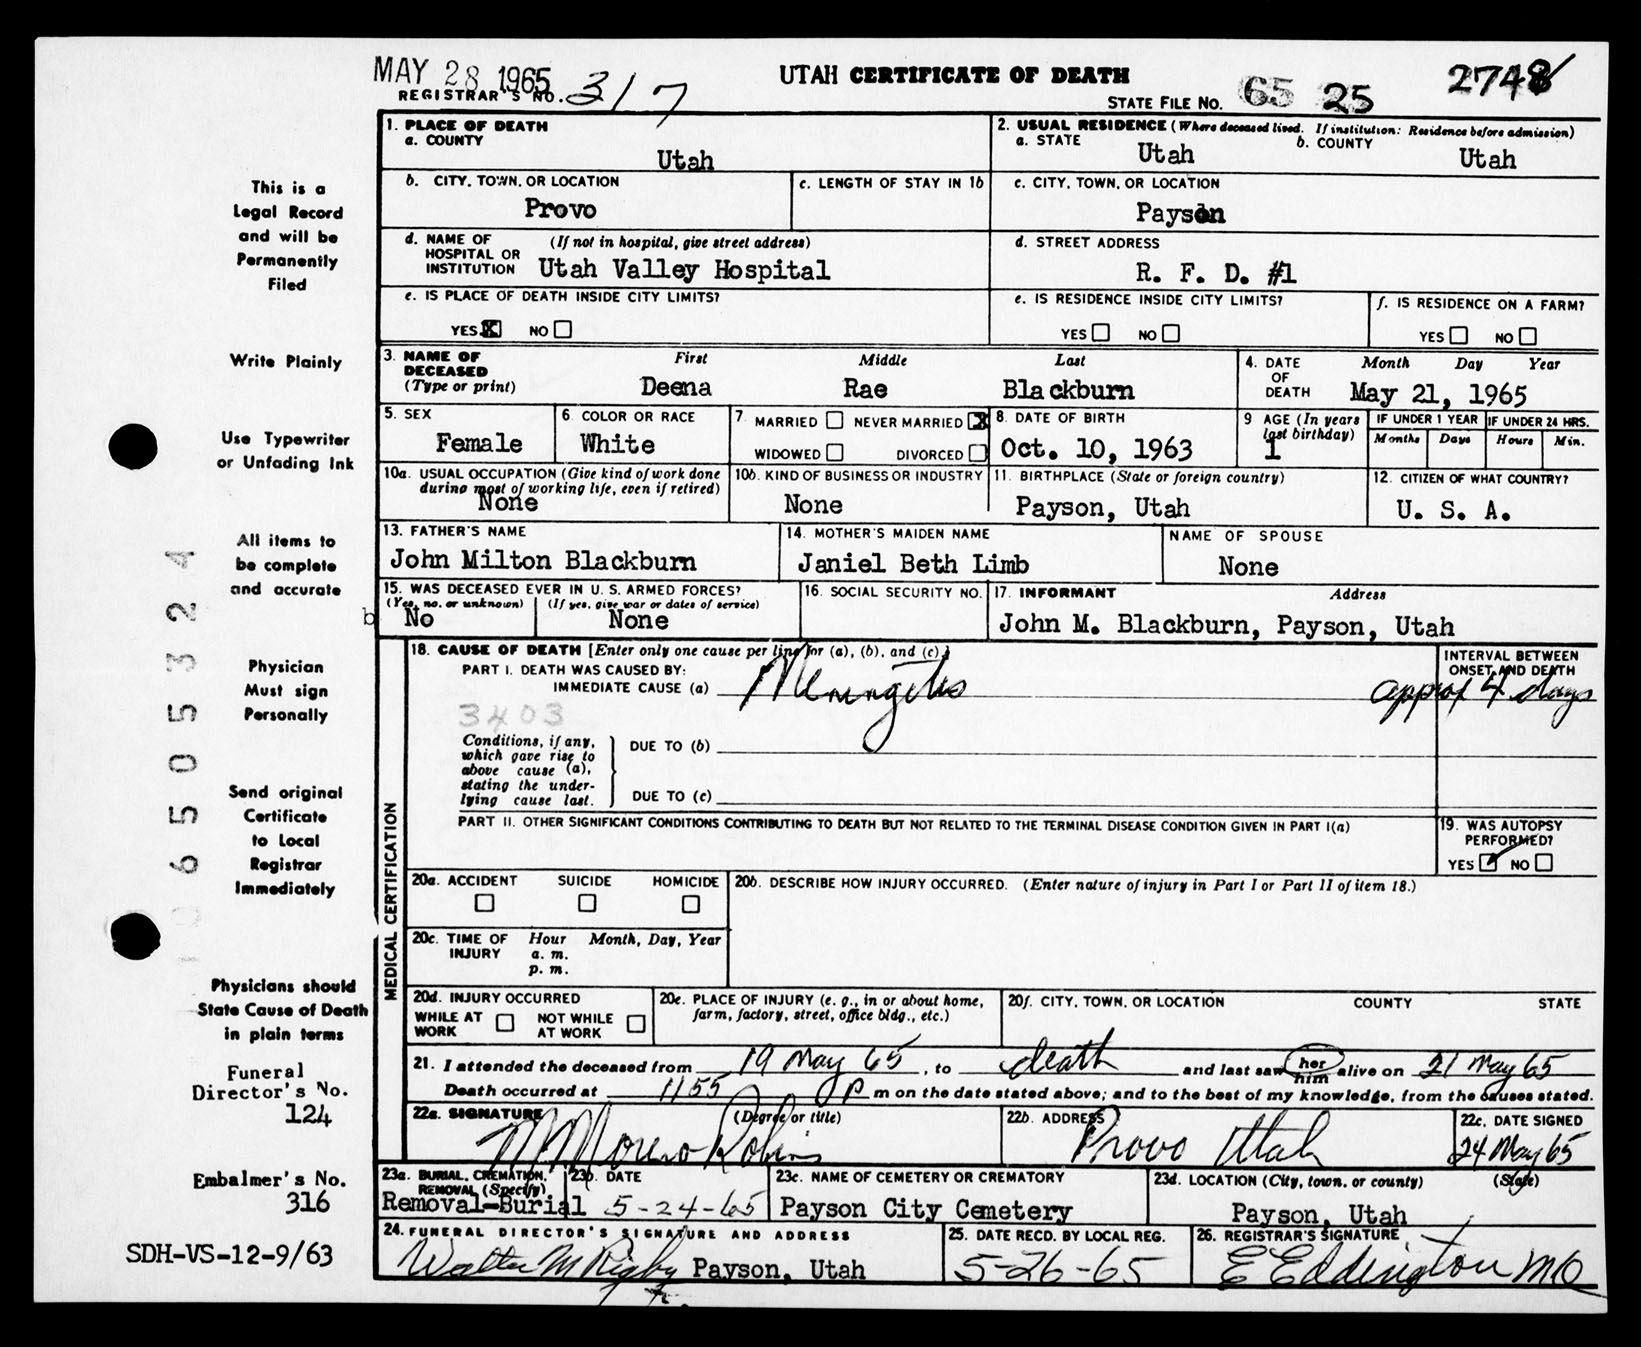 MAY 28 1965
REGISTRAR'S NO. 317
UTAH CERTIFICATE OF DEATH
STATE FILE NO. 65 25 2748
This is a
Legal Record
and will be
Permanently
Filed
Write Plainly
Use Typewriter
or Unfading Ink
All items to
be complete
and accurate
Physician
Must sign
Personally
Send original
Certificate
to Local
Registrar
Immediately
Physicians should
State Cause of Death
in plain terms
Funeral
Director's No.
124
Embalmer's No.
316
SDH-VS-12-9/63
6505324
1. PLACE OF DEATH
a. COUNTY
Utah
2. USUAL RESIDENCE (Where deceased lived. If institution: Residence before admission)
a. STATE Utah b. COUNTY Utah
b. CITY, TOWN, OR LOCATION
Provo
c. LENGTH OF STAY IN 1b
c. CITY, TOWN, OR LOCATION
Payson
d. NAME OF (If not in hospital, give street address)
HOSPITAL OR
INSTITUTION Utah Valley Hospital
d. STREET ADDRESS
R. F. D. #1
e. IS PLACE OF DEATH INSIDE CITY LIMITS?
YES X NO
e. IS RESIDENCE INSIDE CITY LIMITS?
YES NO
f. IS RESIDENCE ON A FARM?
YES NO
3. NAME OF
DECEASED
(Type or print)
First Middle Last
Deena Rae Blackburn
4. DATE
OF
DEATH
Month Day Year
May 21, 1965
5. SEX
Female
6. COLOR OR RACE
White
7. MARRIED NEVER MARRIED X
WIDOWED DIVORCED
8. DATE OF BIRTH
Oct. 10, 1963
9 AGE (In years
last birthday)
1
IF UNDER 1 YEAR
Months Days
IF UNDER 24 HRS.
Hours Min.
10a. USUAL OCCUPATION (Give kind of work done
during most of working life, even if retired)
None
10b. KIND OF BUSINESS OR INDUSTRY
None
11. BIRTHPLACE (State or foreign country)
Payson, Utah
12. CITIZEN OF WHAT COUNTRY?
U. S. A.
13. FATHER'S NAME
John Milton Blackburn
14. MOTHER'S MAIDEN NAME
Janiel Beth Limb
NAME OF SPOUSE
None
15. WAS DECEASED EVER IN U. S. ARMED FORCES?
(Yes, no, or unknown) (If yes, give war or dates of service)
b No None
16. SOCIAL SECURITY NO.
17. INFORMANT Address
John M. Blackburn, Payson, Utah
MEDICAL CERTIFICATION
18. CAUSE OF DEATH [Enter only one cause per line for (a), (b), and (c).]
PART I. DEATH WAS CAUSED BY:
IMMEDIATE CAUSE (a) Meningitis
INTERVAL BETWEEN
ONSET AND DEATH
approx 4 days
3403
Conditions, if any,
which gave rise to
above cause (a),
stating the under-
lying cause last.
DUE TO (b)
DUE TO (c)
PART II. OTHER SIGNIFICANT CONDITIONS CONTRIBUTING TO DEATH BUT NOT RELATED TO THE TERMINAL DISEASE CONDITION GIVEN IN PART I(a)
19. WAS AUTOPSY
PERFORMED?
YES ✓ NO
20a. ACCIDENT SUICIDE HOMICIDE
20b. DESCRIBE HOW INJURY OCCURRED. (Enter nature of injury in Part I or Part II of item 18.)
20c. TIME OF
INJURY
Hour Month, Day, Year
a. m.
p. m.
20d. INJURY OCCURRED
WHILE AT
WORK
NOT WHILE
AT WORK
20e. PLACE OF INJURY (e. g., in or about home,
farm, factory, street, office bldg., etc.)
20f. CITY, TOWN, OR LOCATION COUNTY STATE
21. I attended the deceased from 19 May 65, to death and last saw her him alive on 21 May 65
Death occurred at 1155 P m on the date stated above; and to the best of my knowledge, from the causes stated.
22a. SIGNATURE (Degree or title)
M Moreno Robins
22b. ADDRESS
Provo Utah
22c. DATE SIGNED
24 May 65
23a. BURIAL, CREMATION,
REMOVAL (Specify)
Removal-Burial
23b. DATE
5-24-65
23c. NAME OF CEMETERY OR CREMATORY
Payson City Cemetery
23d. LOCATION (City, town, or county) (State)
Payson, Utah
24. FUNERAL DIRECTOR'S SIGNATURE AND ADDRESS
Walter M Rigby Jr. Payson, Utah
25. DATE RECD. BY LOCAL REG.
5-26-65
26. REGISTRAR'S SIGNATURE
E Eddington MD